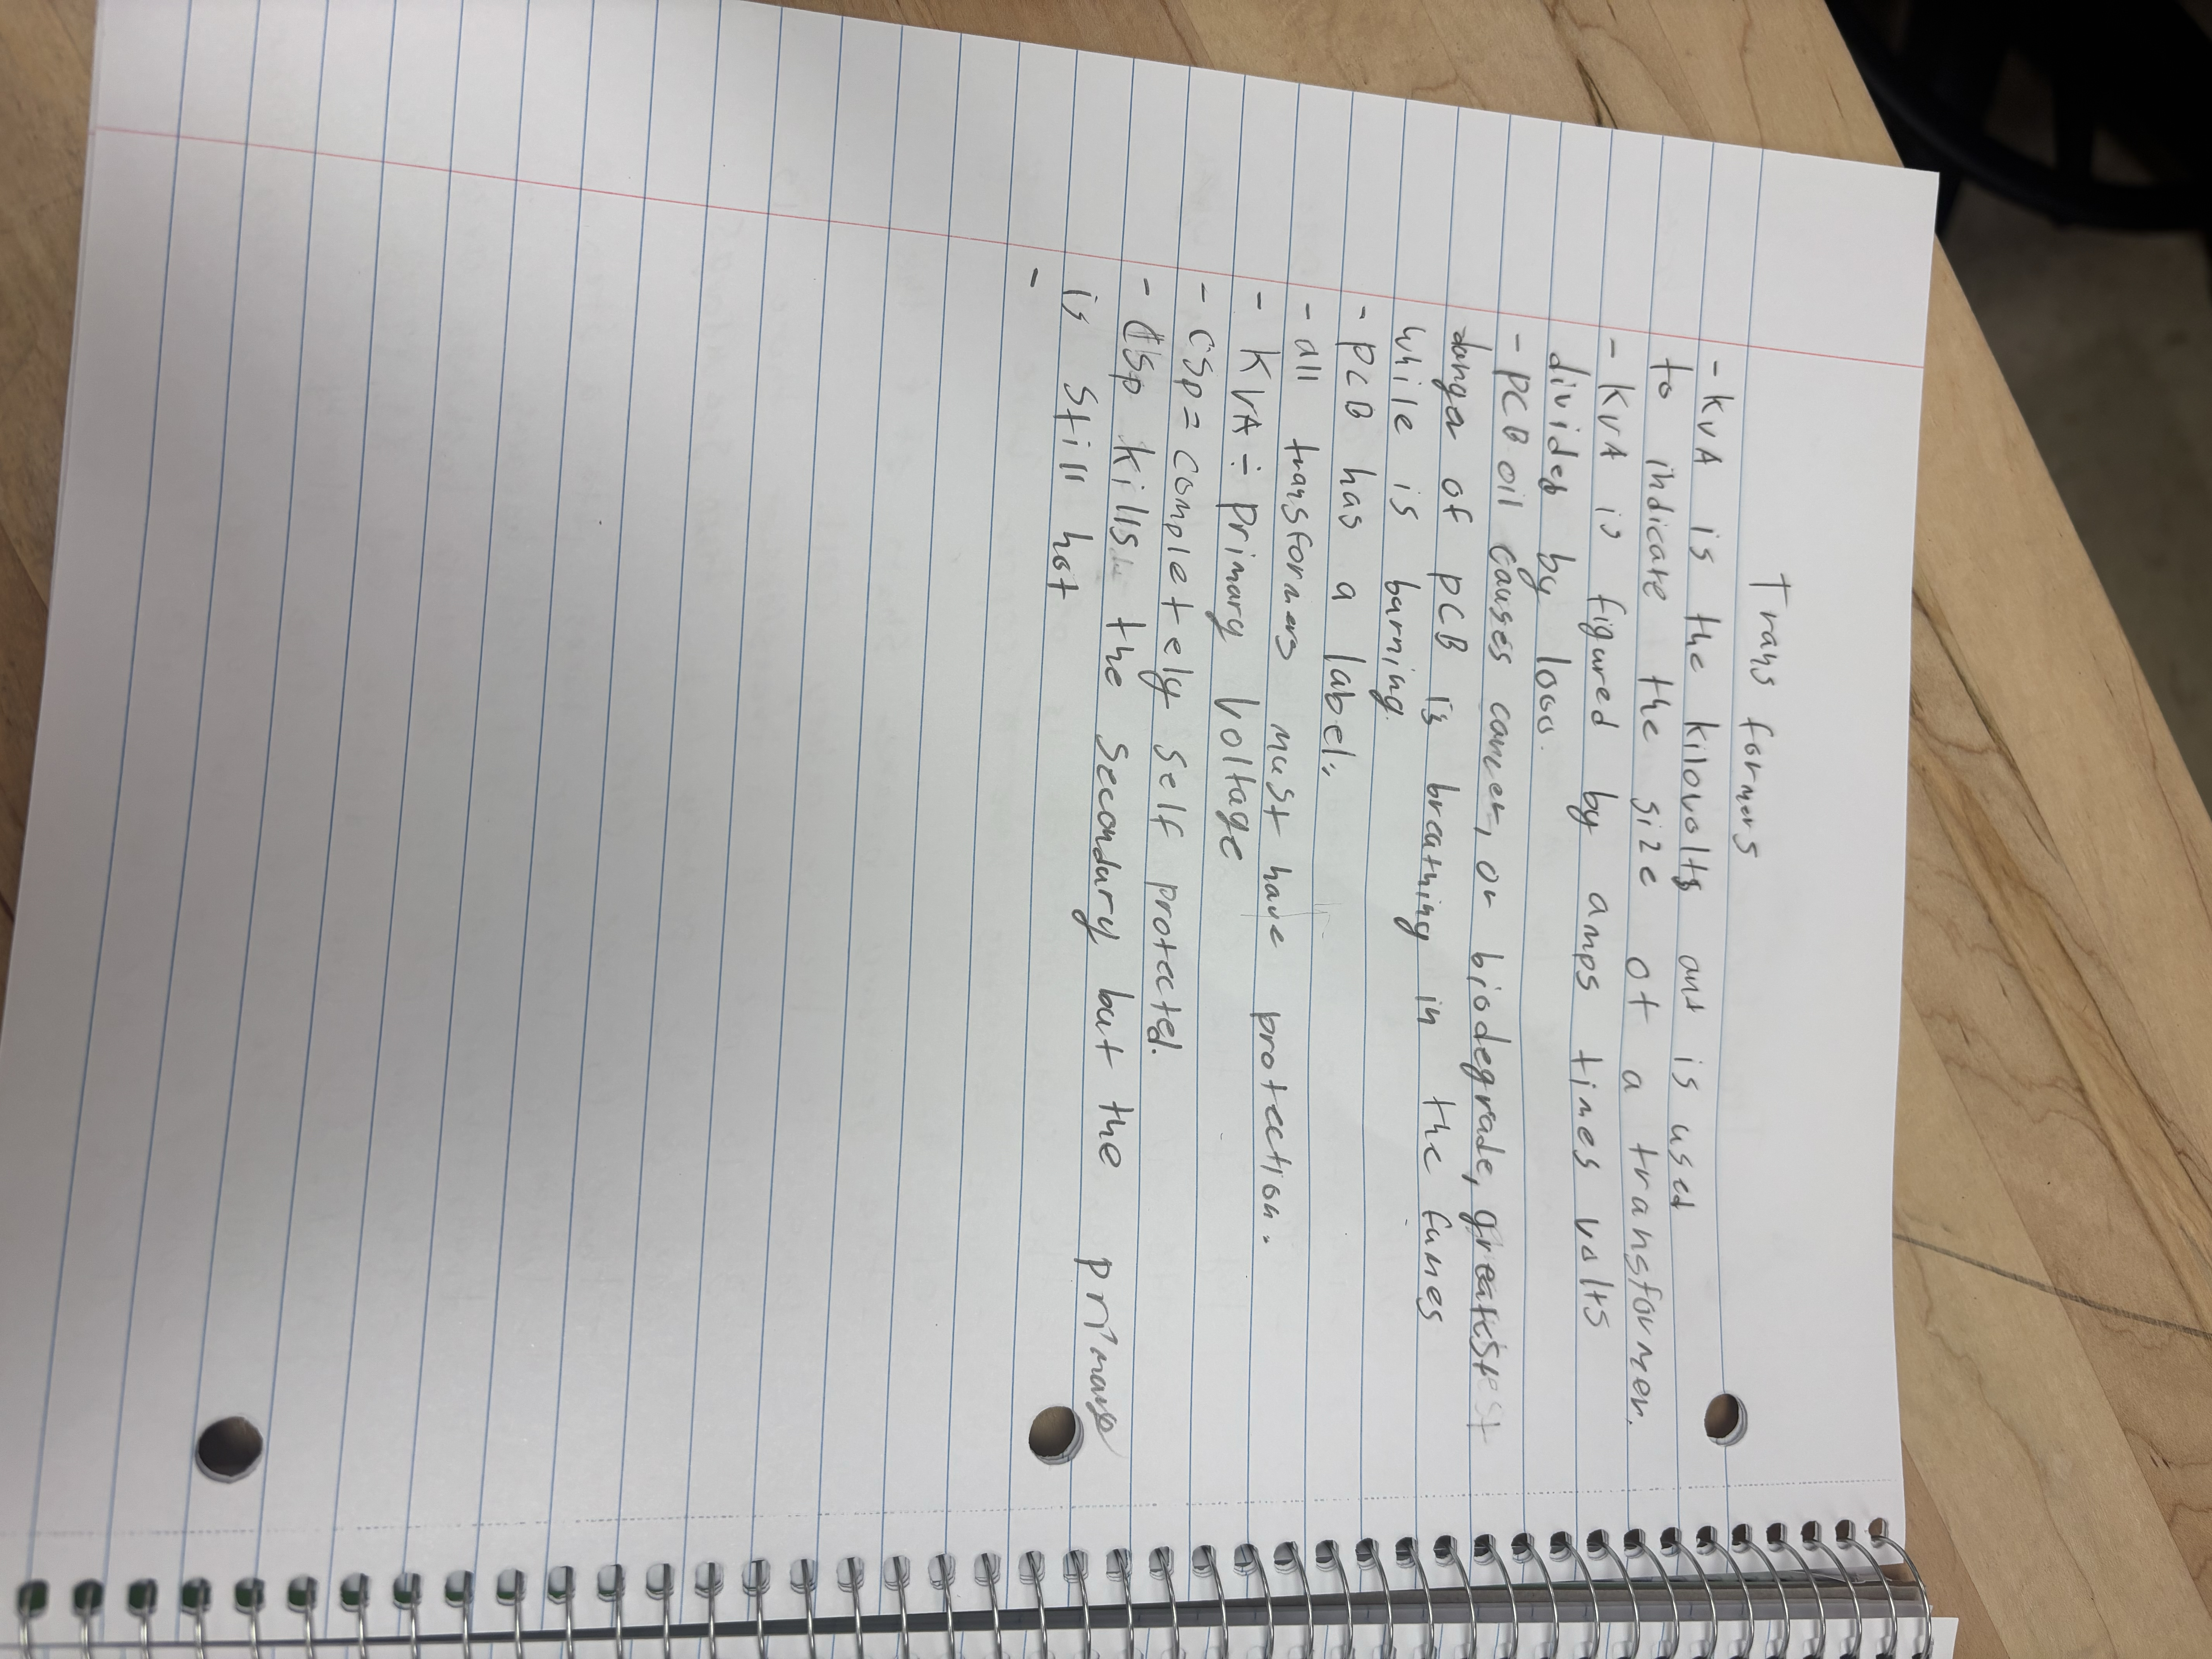 Transformers
- KVA is the kilovolts and is used
to indicate the size of a transformer.
- KVA is figured by amps times volts
divided by 1000.
- PCB oil causes cancer, or biodegrade, greatest
danger of PCB is breathing in the fumes
while is burning.
- PCB has a label.
- all transformers must have protection.
- KVA ÷ primary voltage
- CSP = completely self protected.
- CSP kills the secondary but the primary
is still hot
-